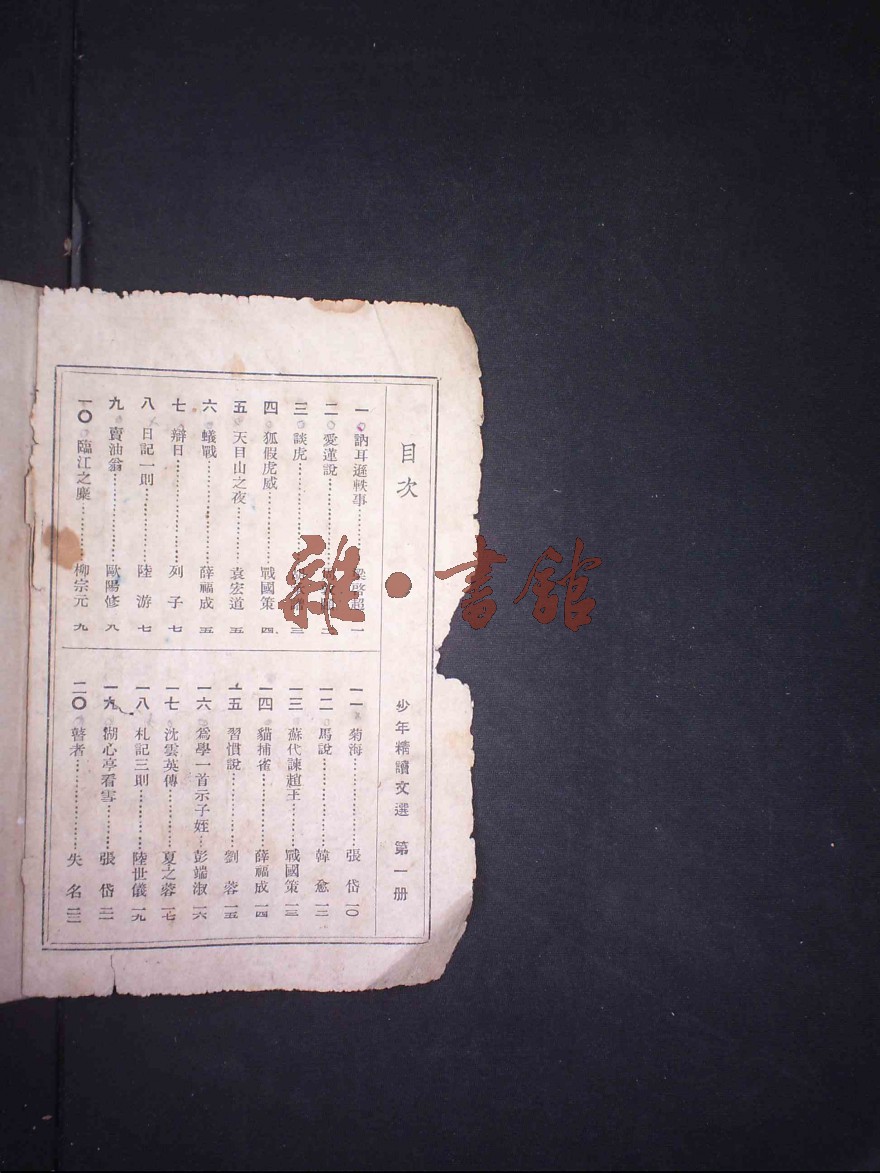 目次
少年精讀文選 第一册
一 訥耳遜軼事 梁啓超 一
二 愛蓮說
三 談虎 三
四 狐假虎威 戰國策 四
五 天目山之夜 袁宏道 五
六 蟻戰 薛福成 五
七 辯日 列子 七
八 日記一則 陸游 七
九 賣油翁 歐陽修 八
一〇 臨江之麋 柳宗元 九
一一 菊海 張岱 一〇
一二 馬說 韓愈 一二
一三 蘇代諫趙王 戰國策 一三
一四 貓捕雀 薛福成 一四
一五 習慣說 劉蓉 一五
一六 爲學一首示子姪 彭端淑 一六
一七 沈雲英傳 夏之蓉 一七
一八 札記三則 陸世儀 一九
一九 湖心亭看雪 張岱
二〇 瞽者 失名
雜·書館